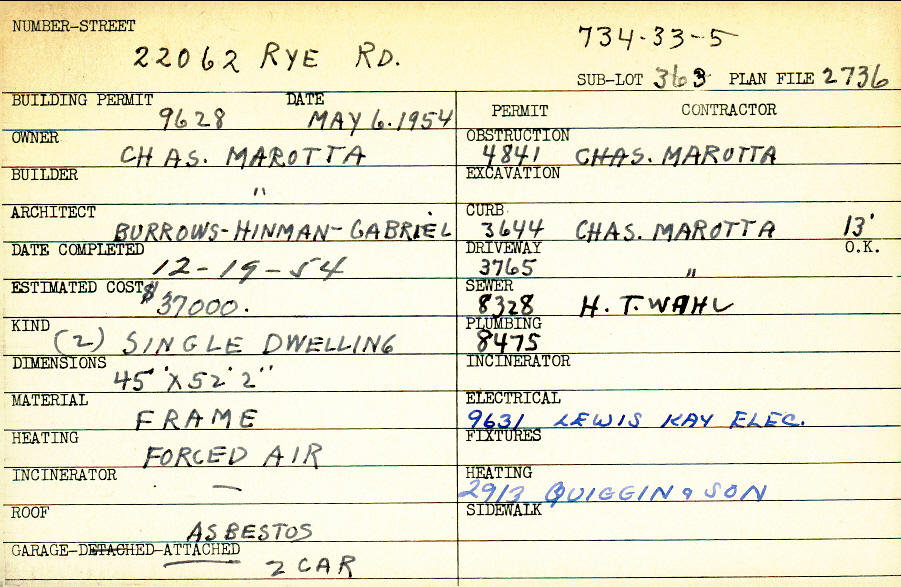 NUMBER-STREET
22062 RYE RD.
734-33-5
SUB-LOT 363 PLAN FILE 2736
BUILDING PERMIT DATE
9628 MAY 6. 1954
PERMIT CONTRACTOR
OWNER
CHAS. MAROTTA
OBSTRUCTION
4841 CHAS. MAROTTA
BUILDER
"
EXCAVATION
ARCHITECT
BURROWS-HINMAN-GABRIEL
CURB
3644 CHAS. MAROTTA 13'
DATE COMPLETED
12-19-54
DRIVEWAY O.K.
3765 "
ESTIMATED COST
$37000.
SEWER
8328 H. T. WAHL
KIND
(2) SINGLE DWELLING
PLUMBING
8475
DIMENSIONS
45' X 52' 2"
INCINERATOR
MATERIAL
FRAME
ELECTRICAL
9631 LEWIS KAY ELEC.
HEATING
FORCED AIR
FIXTURES
INCINERATOR
—
HEATING
2913 QUIGGIN & SON
ROOF
ASBESTOS
SIDEWALK
GARAGE-DETACHED-ATTACHED
2 CAR